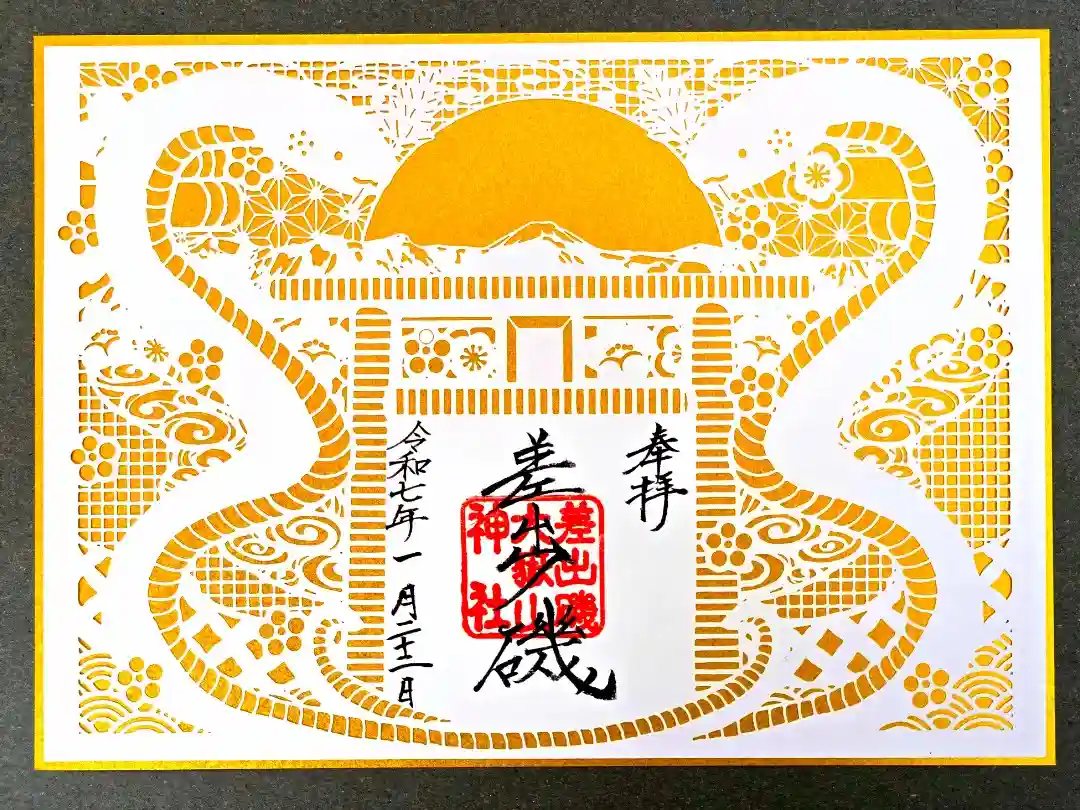 奉拝
差出磯
差出磯
大嶽山
神社
令和七年一月二十二日